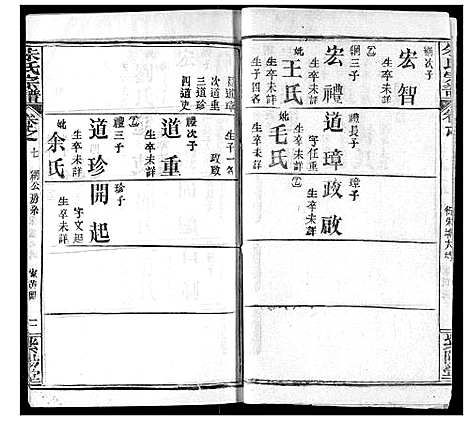 宏智
網次子
生卒未詳
宏禮
網三子
生卒未詳
妣王氏
生卒未詳
生子四名
長道璋
次道重
三道珍
四道史
道璋
禮長子
字任重
生卒未詳
妣毛氏
生卒未詳
生子一名
政啟
道重
禮次子
生卒未詳
道珍
禮三子
生卒未詳
妣余氏
生卒未詳
政啟
璋子
生卒未詳
開起
珍子
字文起
生卒未詳
朱氏宗譜
卷之
七
網公房系
紫陽堂